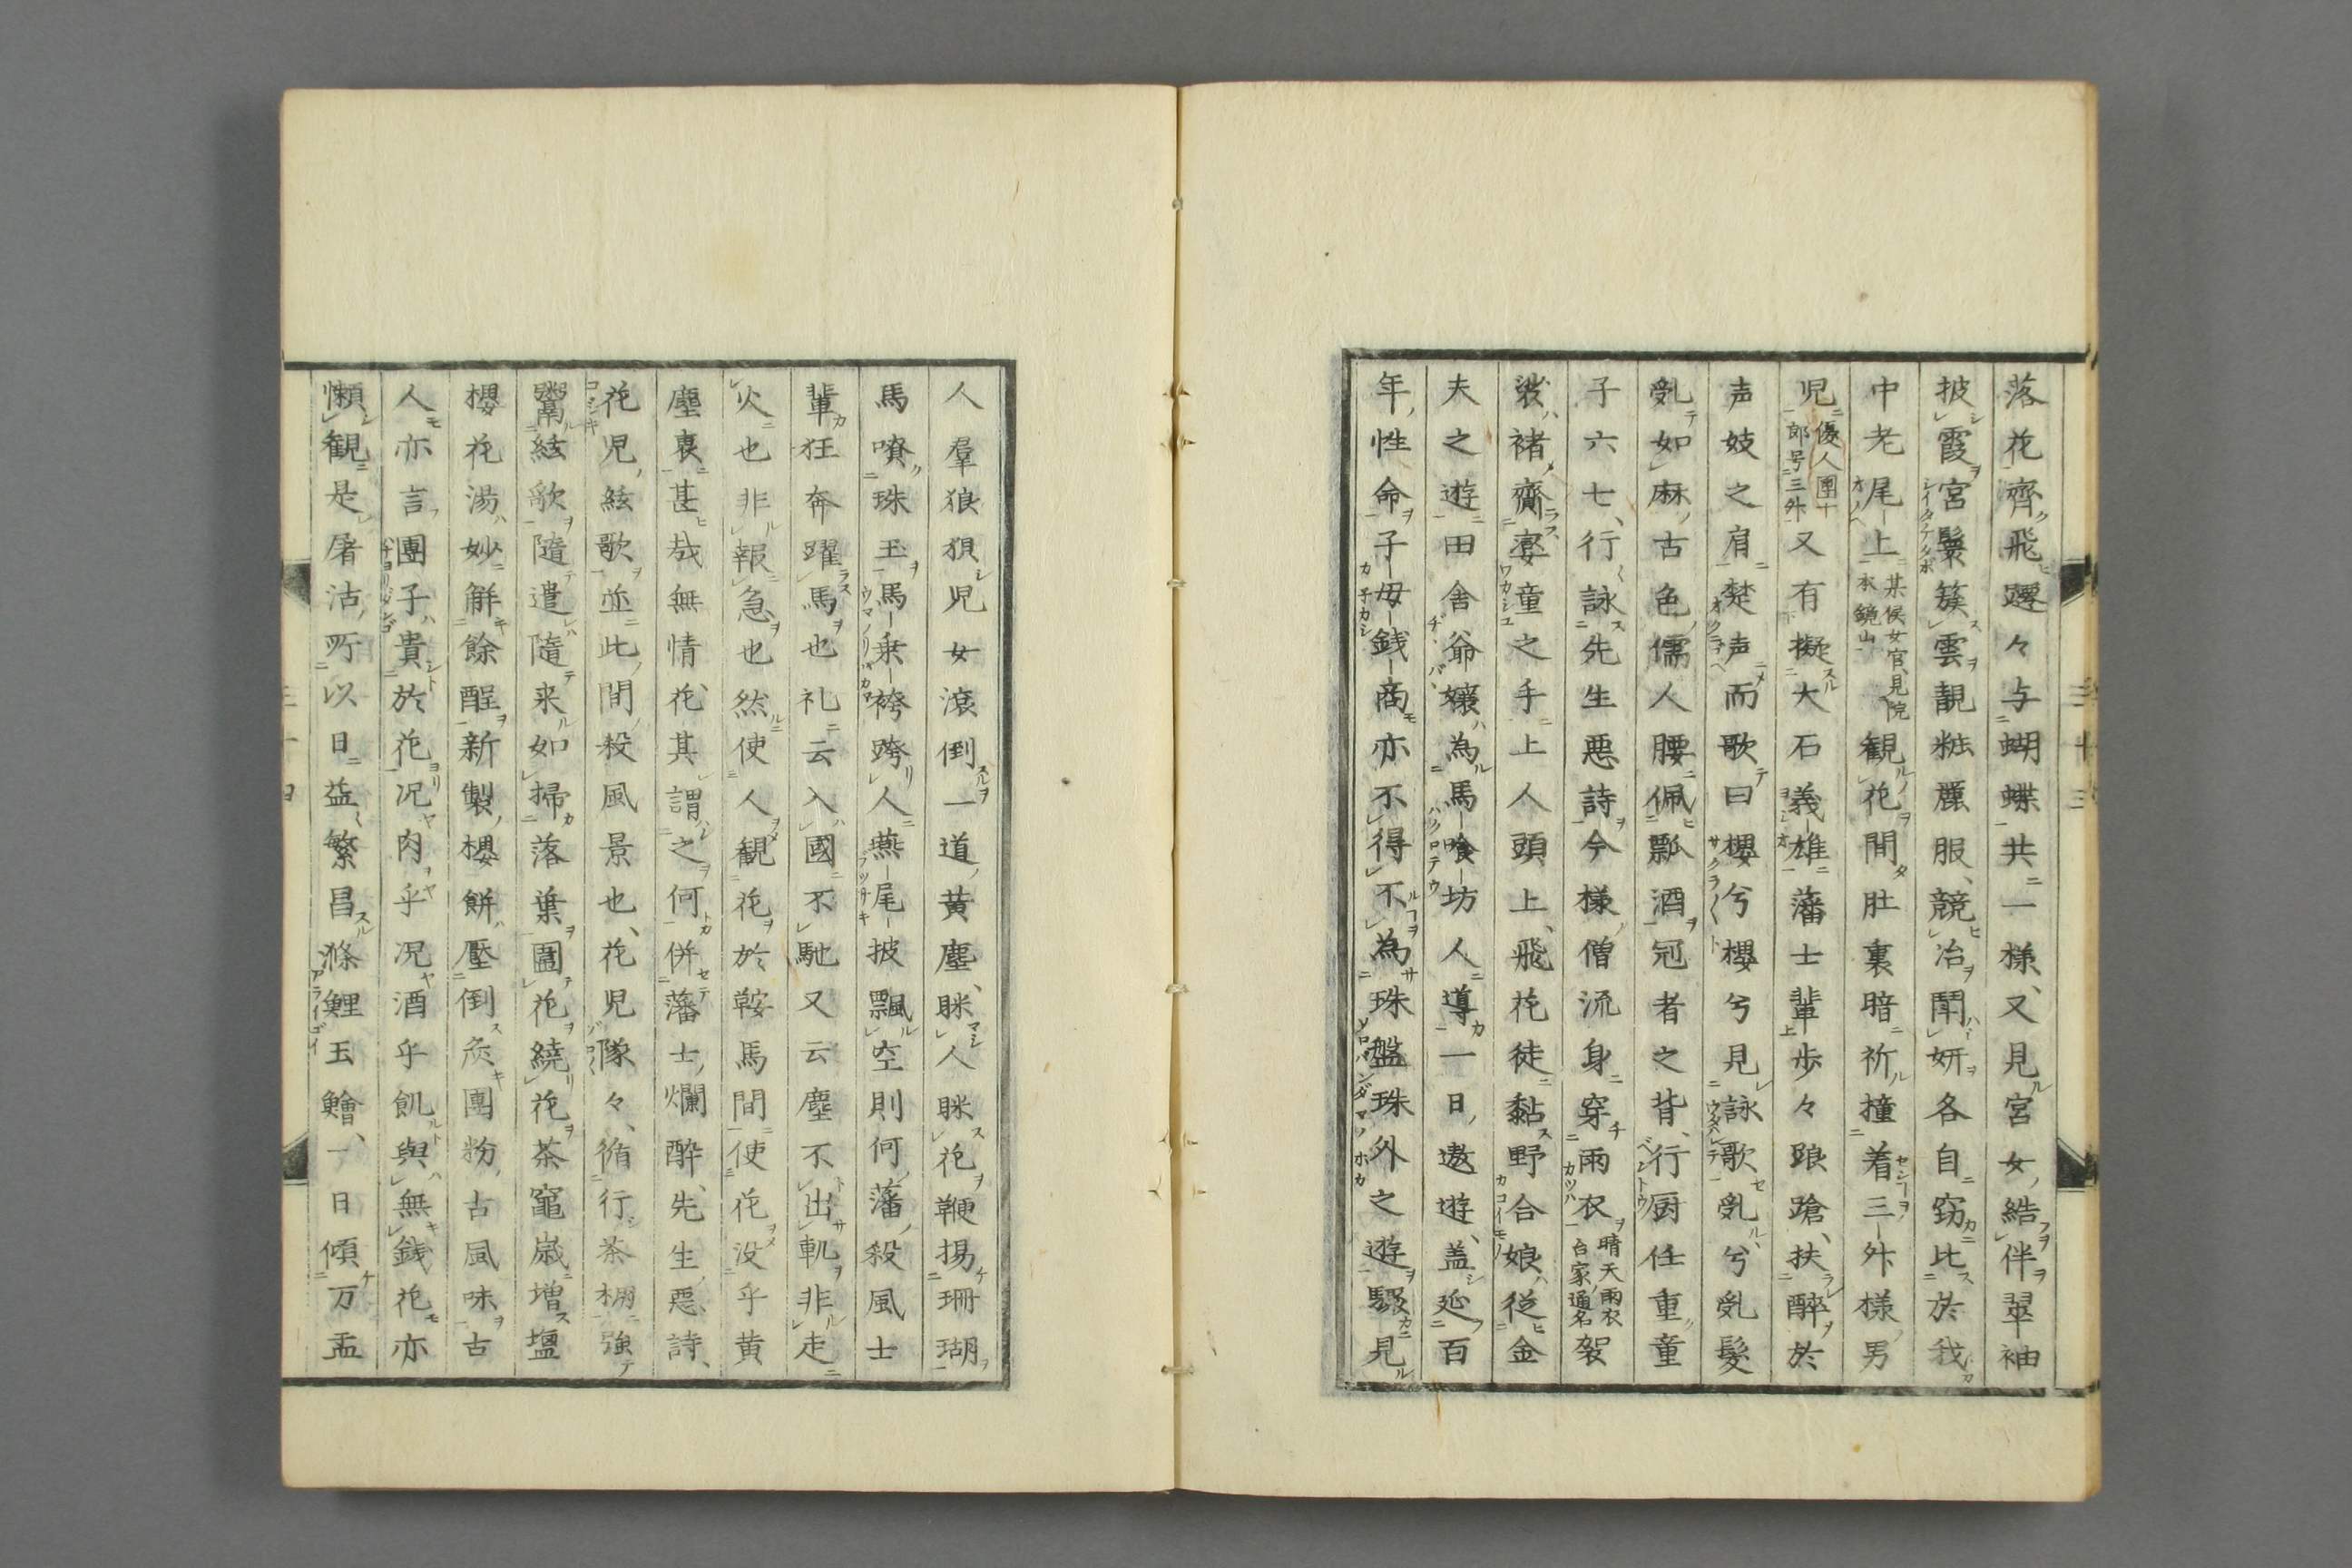 落花齊飛躚々与蝴蝶共一様、又見宮女、結伴翠袖
披霞宮鬟簇雲靚粧麗服、競冶鬪妍各自窈比於我
中老尾上某侯女官、見院本鏡山観花間肚裏暗祈撞着三外様男
児優人團十郎号三外又有擬大石義雄藩士輩歩々踉蹌、扶酔於
声妓之肩楚声而歌曰櫻兮櫻兮見詠歌乱兮乱髪
乱如麻古色儒人腰佩瓢酒冠者之背、行厨任重童
子六七、行詠先生悪詩今様僧流身穿雨衣晴天雨衣台家通名袈
裟褚齎寧童之手上人頭上、飛花徒黏野合娘従金
夫之遊田舎爺嬢為馬喰坊人導一日遨遊、盖延百
年性命子母銭商亦不得不為珠盤珠外之遊驟見
人羣狼狽児女滾倒一道黄塵、眯人眯花鞭揚珊瑚
馬噴珠玉馬乗袴跨人燕尾披飄空則何藩殺風士
輩狂奔躍馬也礼云入國不馳又云塵不出軌非走
火也非報急也然使人観花於鞍馬間使花没乎黄
塵裏甚哉無情花其謂之何併藩士爛酔、先生悪詩、
花児絃歌並此間殺風景也、花児隊々、脩行茶棚強
鬻絃歌隨遣隨来如掃落葉圍花繞花茶竈嵗増塩
櫻花湯妙解餘酲新製櫻餅壓倒灸團粉古風味古
人亦言團子貴於花况肉乎况酒乎飢與無銭花亦
懶観是屠沽所以日益繁昌滌鯉玉鱠、一日傾万盂